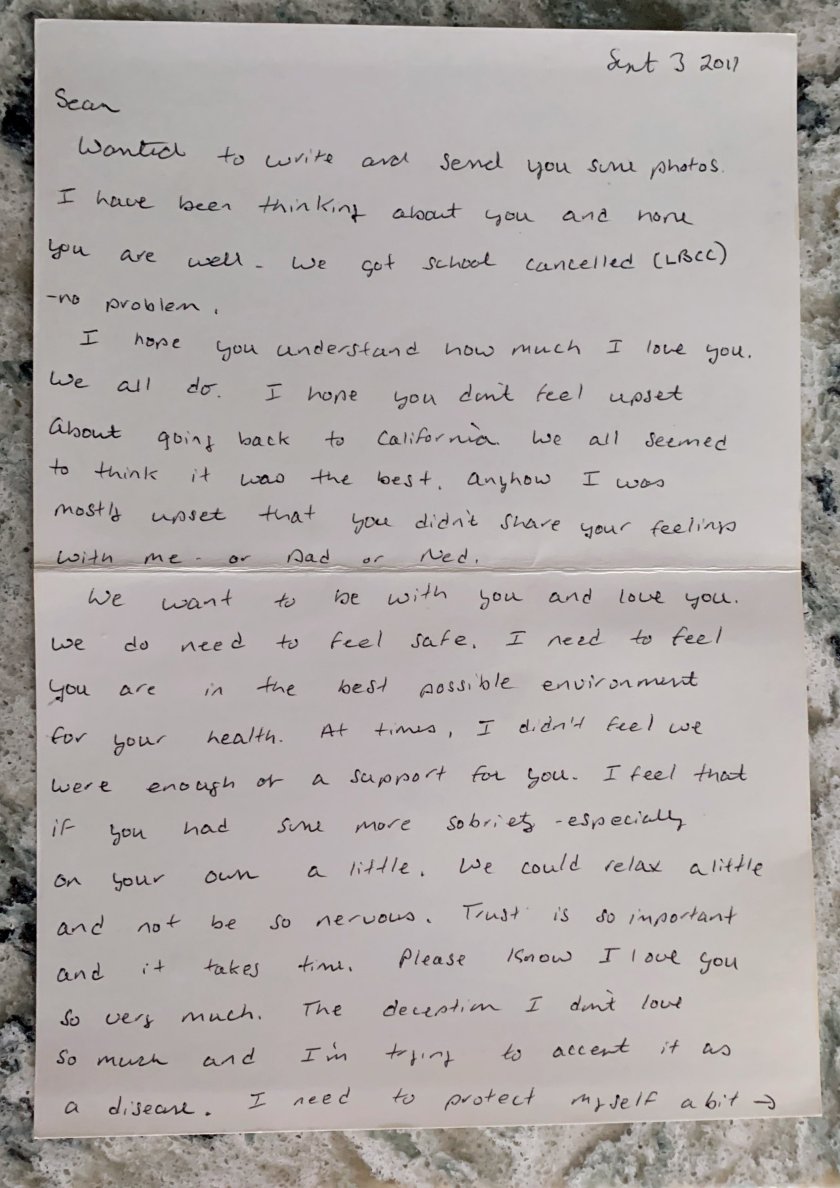 Sept 3 2017
Sean
Wanted to write and send you some photos.
I have been thinking about you and hope
you are well - We got school cancelled (LBCC)
-no problem.
I hope you understand how much I love you.
We all do. I hope you don't feel upset
about going back to California. We all seemed
to think it was the best. Anyhow I was
mostly upset that you didn't share your feelings
with me - or Dad or Ned.
We want to be with you and love you.
We do need to feel safe. I need to feel
you are in the best possible environment
for your health. At times, I didn't feel we
were enough of a support for you. I feel that
if you had some more sobriety - especially
on your own a little. We could relax a little
and not be so nervous. Trust is so important
and it takes time. Please know I love you
so very much. The deception I don't love
so much and I'm trying to accept it as
a disease. I need to protect myself a bit →